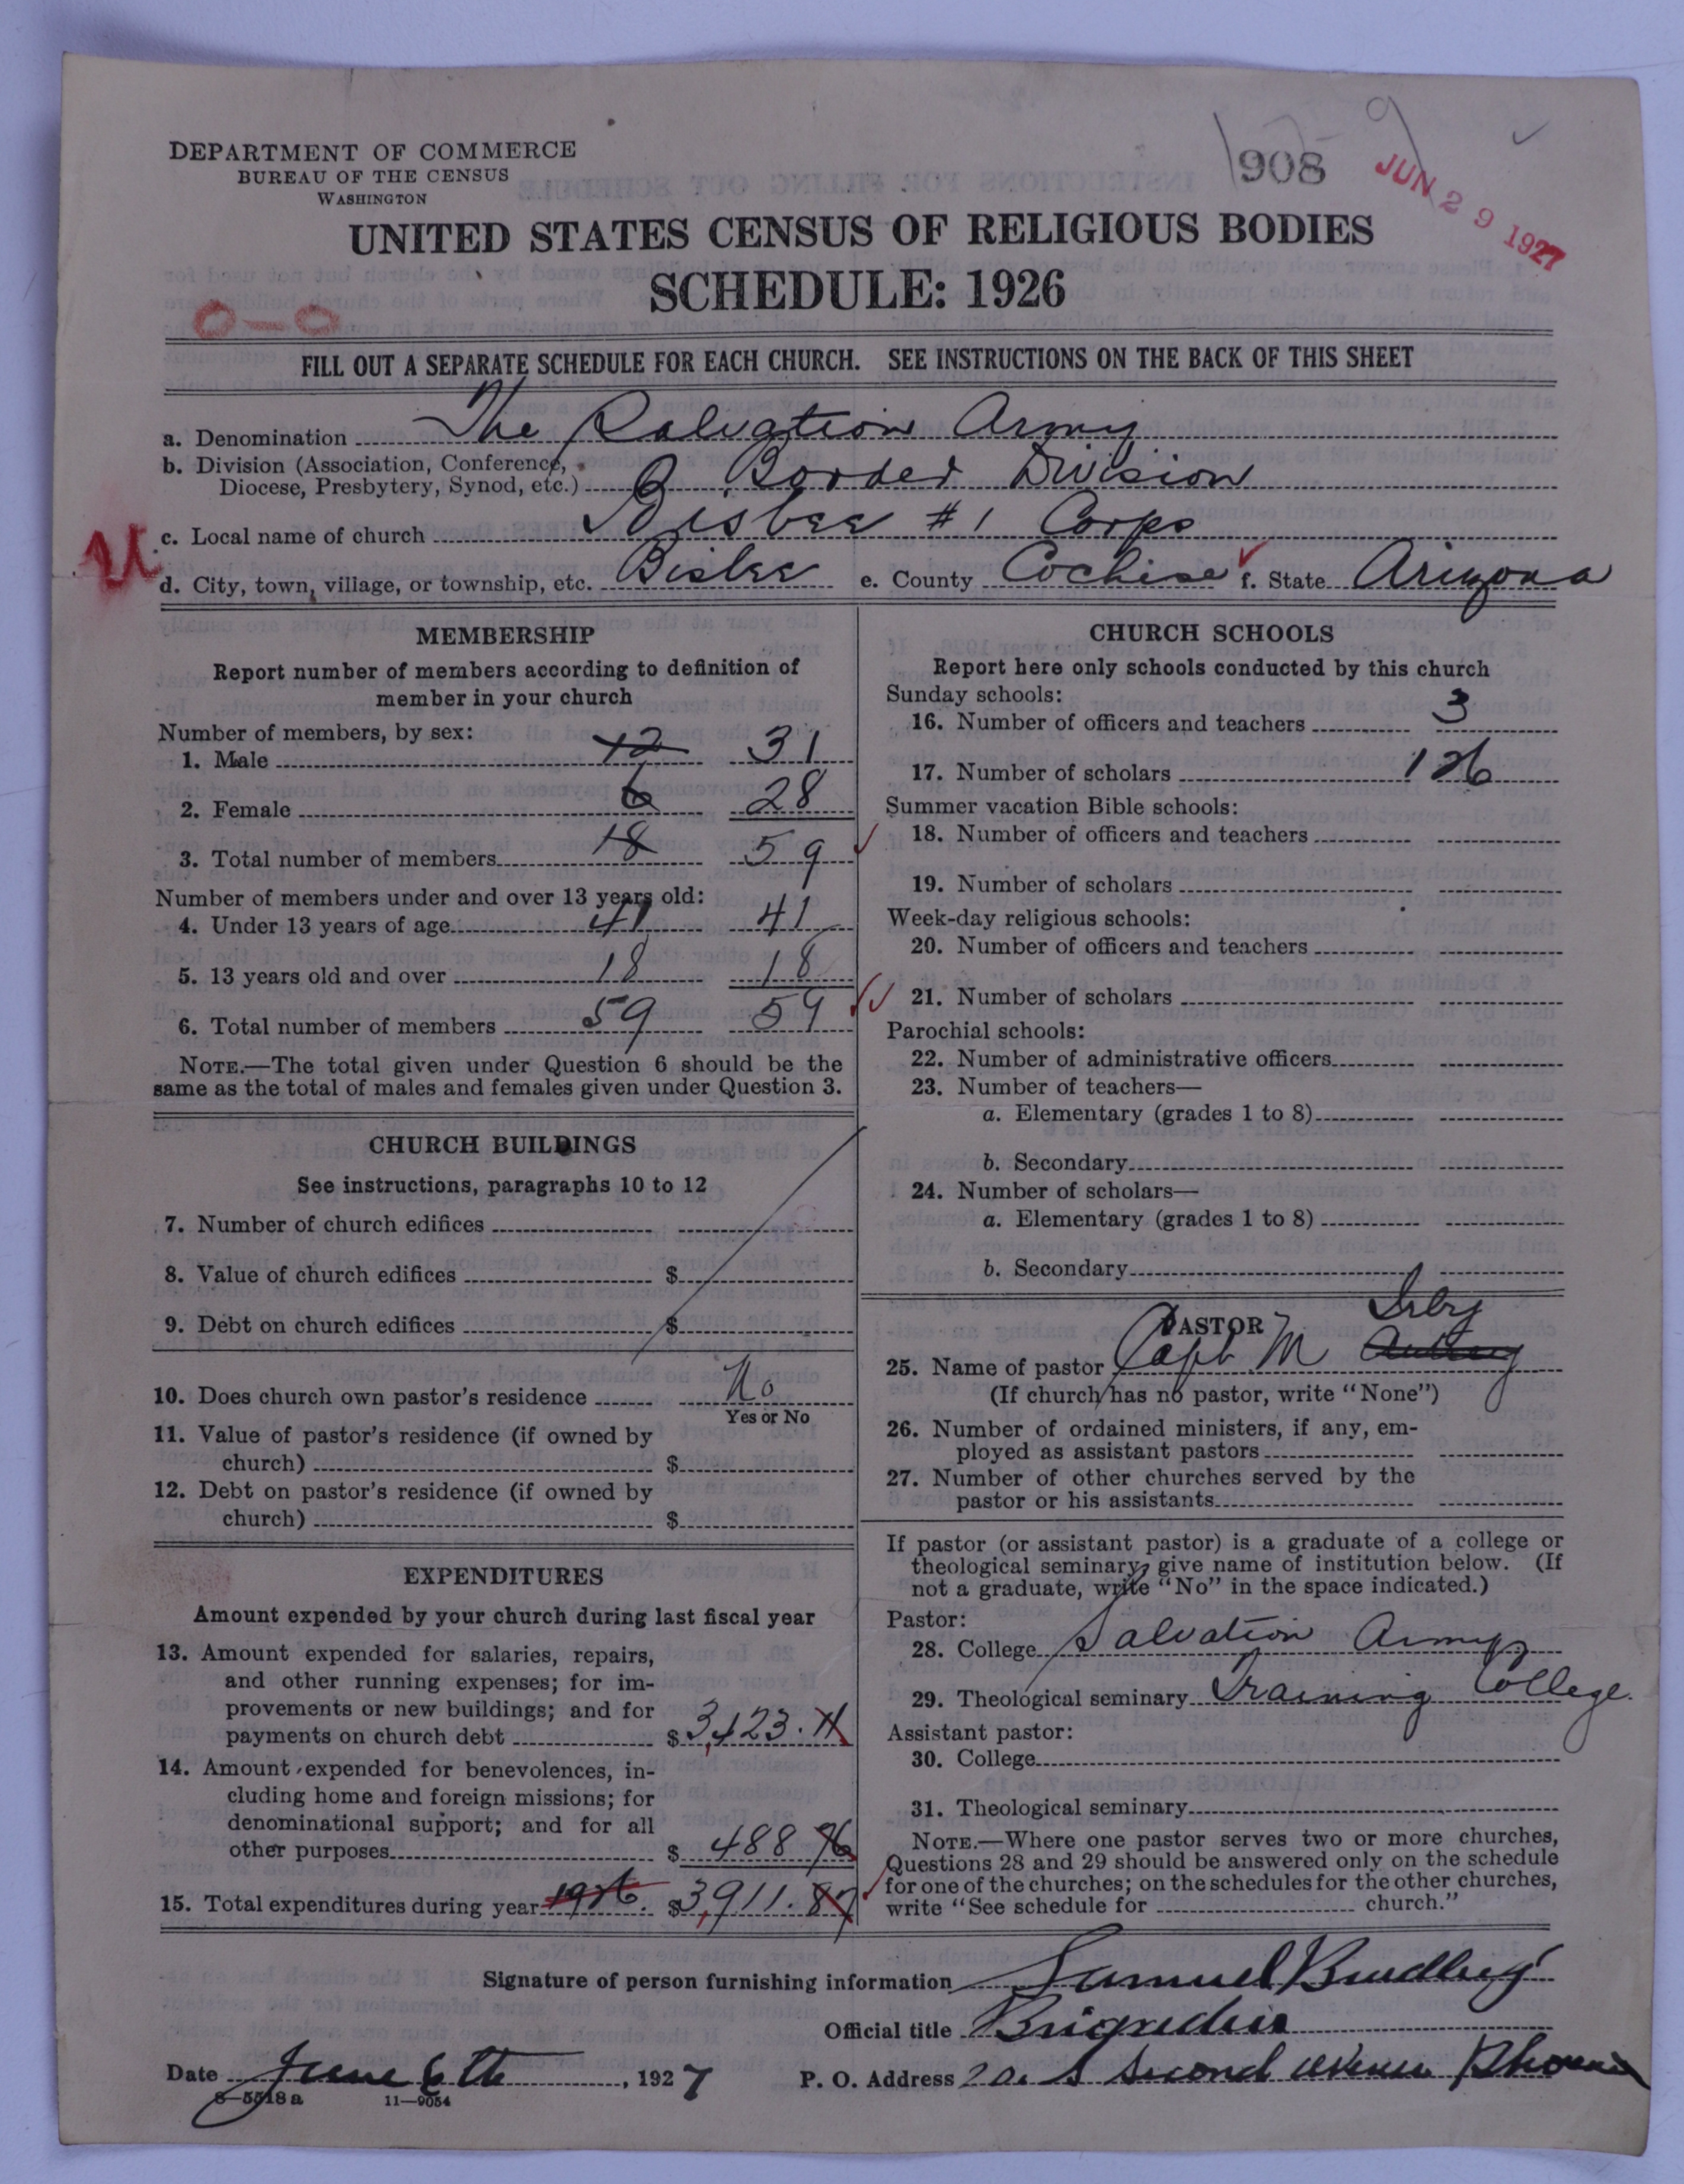 DEPARTMENT OF COMMERCE
BUREAU OF THE CENSUS
WASHINGTON
908
JUN 29 1927
UNITED STATES CENSUS OF RELIGIOUS BODIES
SCHEDULE: 1926
0—0
FILL OUT A SEPARATE SCHEDULE FOR EACH CHURCH. SEE INSTRUCTIONS ON THE BACK OF THIS SHEET
a. Denomination The Salvation Army
b. Division (Association, Conference,
Diocese, Presbytery, Synod, etc.) Border Division
c. Local name of church Bisbee #1 Corps
d. City, town, village, or township, etc. Bisbee e. County Cochise f. State Arizona
MEMBERSHIP
Report number of members according to definition of
member in your church
Number of members, by sex:
1. Male 12 31
2. Female 6 28
3. Total number of members 18 59
Number of members under and over 13 years old:
4. Under 13 years of age 41 41
5. 13 years old and over 18 18
6. Total number of members 59 59
NOTE.—The total given under Question 6 should be the
same as the total of males and females given under Question 3.
CHURCH BUILDINGS
See instructions, paragraphs 10 to 12
7. Number of church edifices
8. Value of church edifices $
9. Debt on church edifices $
10. Does church own pastor's residence No
Yes or No
11. Value of pastor's residence (if owned by
church) $
12. Debt on pastor's residence (if owned by
church) $
EXPENDITURES
Amount expended by your church during last fiscal year
13. Amount expended for salaries, repairs,
and other running expenses; for im-
provements or new buildings; and for
payments on church debt $3,423.11
14. Amount expended for benevolences, in-
cluding home and foreign missions; for
denominational support; and for all
other purposes $ 488 76
15. Total expenditures during year 1926. $3,911.87
CHURCH SCHOOLS
Report here only schools conducted by this church
Sunday schools:
16. Number of officers and teachers 3
17. Number of scholars 126
Summer vacation Bible schools:
18. Number of officers and teachers
19. Number of scholars
Week-day religious schools:
20. Number of officers and teachers
21. Number of scholars
Parochial schools:
22. Number of administrative officers
23. Number of teachers—
a. Elementary (grades 1 to 8)
b. Secondary
24. Number of scholars—
a. Elementary (grades 1 to 8)
b. Secondary
PASTOR
25. Name of pastor Capt M Irby
(If church has no pastor, write "None")
26. Number of ordained ministers, if any, em-
ployed as assistant pastors
27. Number of other churches served by the
pastor or his assistants
If pastor (or assistant pastor) is a graduate of a college or
theological seminary, give name of institution below. (If
not a graduate, write "No" in the space indicated.)
Pastor:
28. College Salvation Army
29. Theological seminary Training College.
Assistant pastor:
30. College
31. Theological seminary
NOTE.—Where one pastor serves two or more churches,
Questions 28 and 29 should be answered only on the schedule
for one of the churches; on the schedules for the other churches,
write "See schedule for church."
Signature of person furnishing information Samuel
Official title Brigadier
Date June 6th, 1927 P. O. Address S Second avenue Phoenix
8—5518 a 11—9054